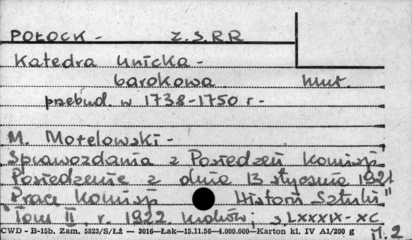 POŁOCK - Z.S.R.R
Katedra Unicka -
barokowa mur.
przebud. w 1738-1750 r -
M. Morelowski -
Sprawozdania z Posiedzeń Komisji
Posiedzenie z dnia 13 stycznia 1921
Pracy Komisji Historii Sztuki"
"Tom II, r. 1922 Kraków; s. LXXXIX - XC
CWD - B-15b. Zam. 5323/S/Łż — 3016—Łak—15.11.50—4.000.000—Karton kl. IV A1/200 g M.2